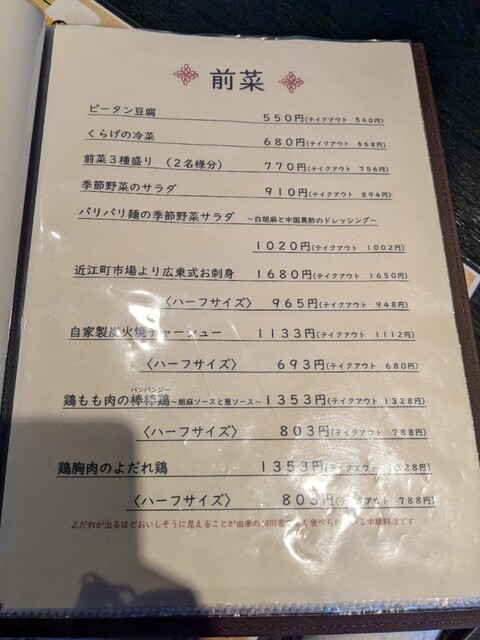 前菜
ピータン豆腐 550円(テイクアウト 540円)
くらげの冷菜 680円(テイクアウト 668円)
前菜3種盛り (2名様分) 770円(テイクアウト 756円)
季節野菜のサラダ 910円(テイクアウト 894円)
パリパリ麺の季節野菜サラダ ~白胡麻と中国黒酢のドレッシング~
1020円(テイクアウト 1002円)
近江町市場より広東式お刺身 1680円(テイクアウト 1650円)
〈ハーフサイズ〉 965円(テイクアウト 948円)
自家製炭火焼チャーシュー 1133円(テイクアウト 1112円)
〈ハーフサイズ〉 693円(テイクアウト 680円)
バンバンジー
鶏もも肉の棒棒鶏~胡麻ソースと葱ソース~ 1353円(テイクアウト 1328円)
〈ハーフサイズ〉 803円(テイクアウト 788円)
鶏胸肉のよだれ鶏 1353円(テイクアウト 1328円)
〈ハーフサイズ〉 803円(テイクアウト 788円)
よだれが出るほどおいしそうに見えることが由来の四川省でよく食べられている中華料理です